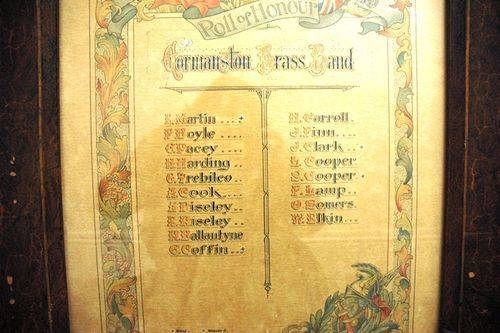 Roll of Honour
Gormanston Brass Band
L. Martin....
F. Doyle....
C. Pacey....
H. Harding..
G. Trebilco..
A. Cook....
A. Piseley..
E. Riseley..
R. Ballantyne
C. Coffin...
H. Carroll.
J. Finn....
J. Clark..
L. Cooper
S. Cooper.
F. Lamp..
O. Somers
W. Elkin...